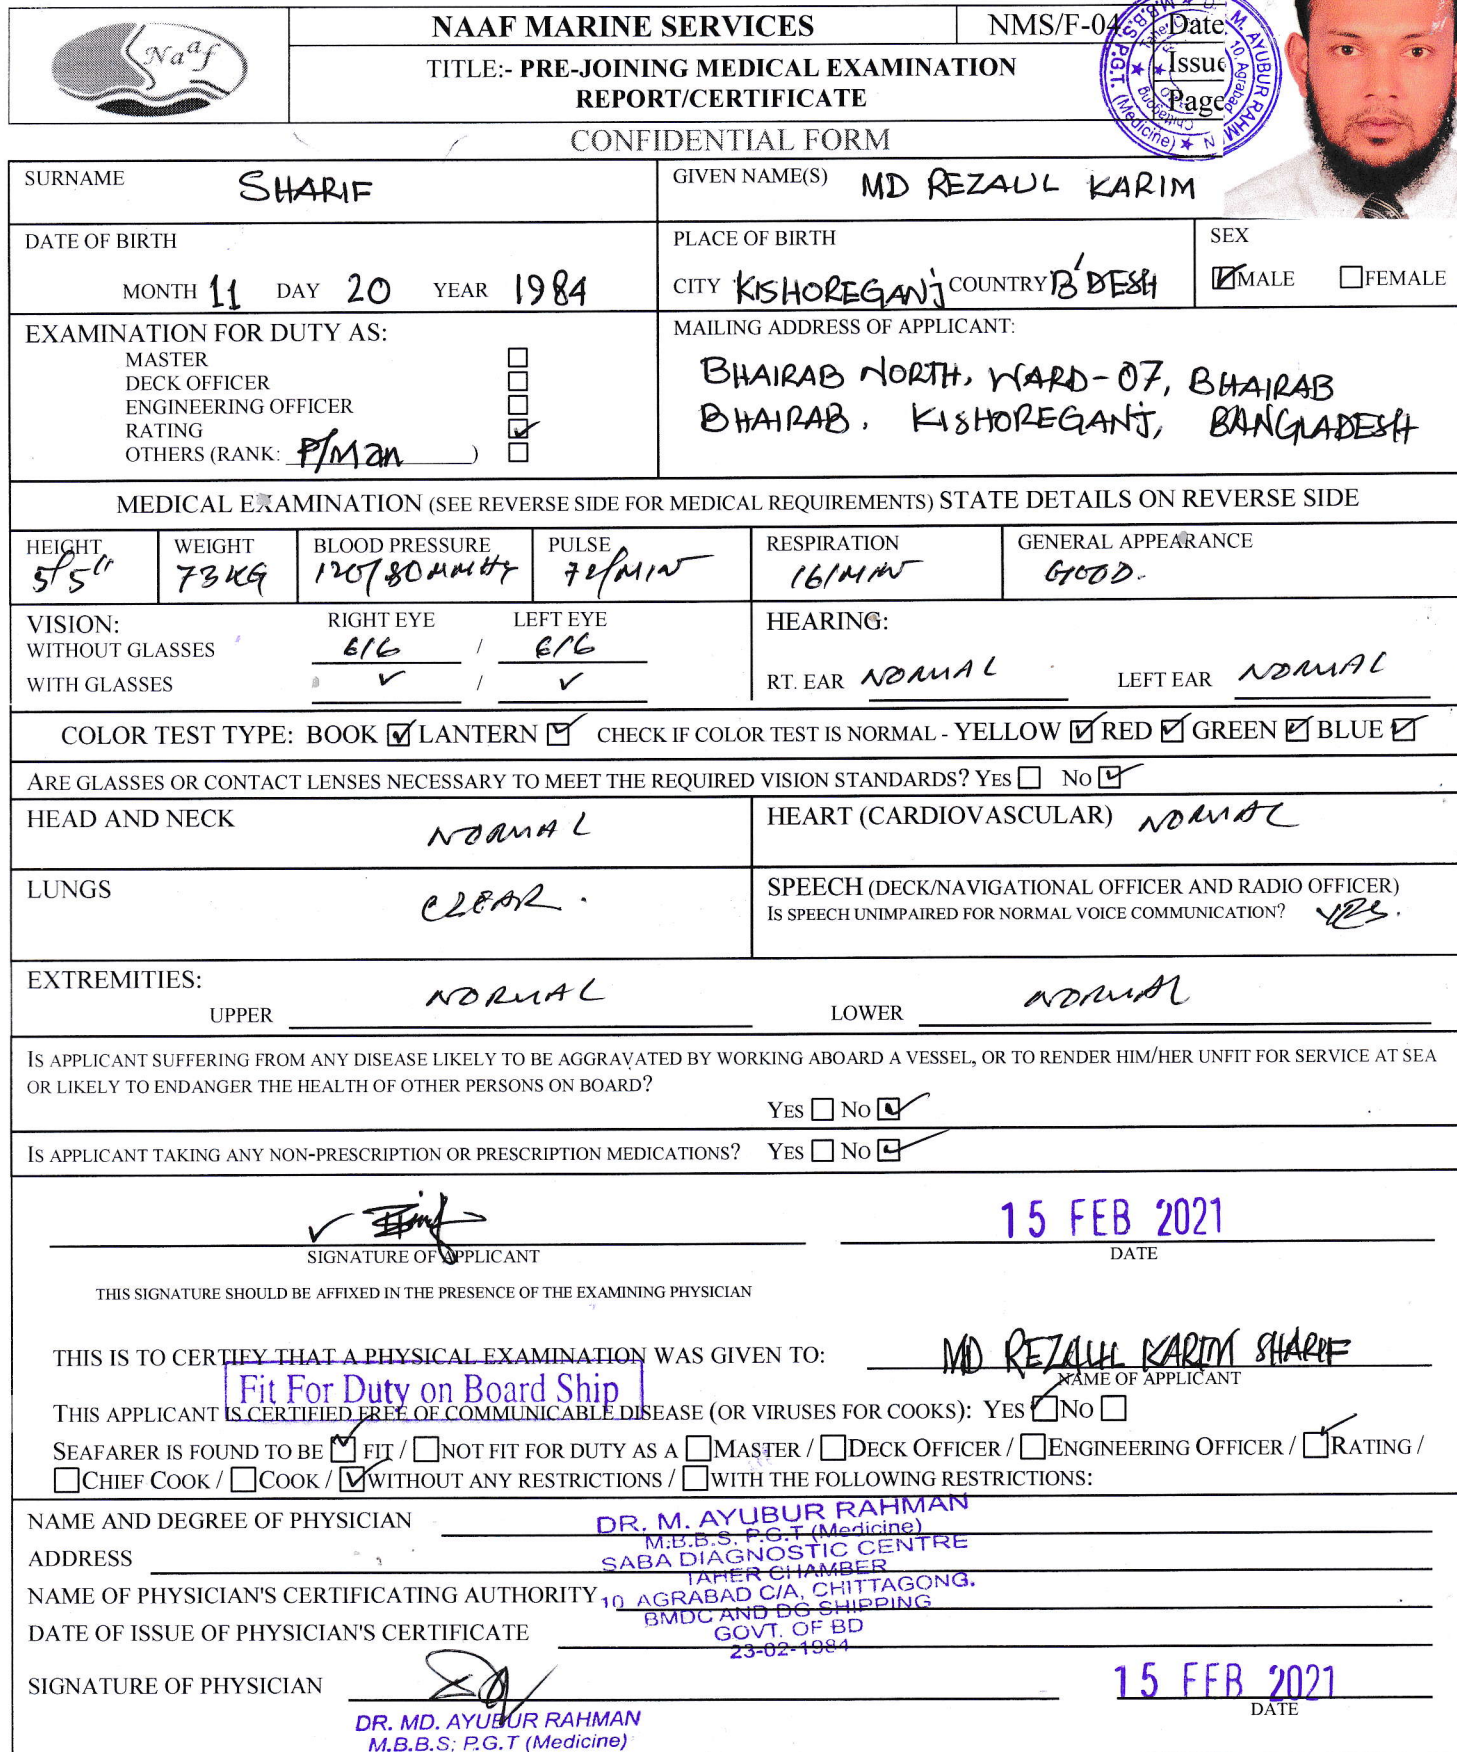 Naaf
NAAF MARINE SERVICES
NMS/F-04
Date
TITLE:- PRE-JOINING MEDICAL EXAMINATION
REPORT/CERTIFICATE
Issue
Page
M. AYUBUR RAHM
10 Agrabad
Chittagong
M.B.B.S. P.G.T. (Medicine)
CONFIDENTIAL FORM
SURNAME SHARIF
GIVEN NAME(S) MD REZAUL KARIM
DATE OF BIRTH
MONTH 11 DAY 20 YEAR 1984
PLACE OF BIRTH
CITY KISHOREGANJ COUNTRY B'DESH
SEX
MALE FEMALE
EXAMINATION FOR DUTY AS:
MASTER
DECK OFFICER
ENGINEERING OFFICER
RATING
OTHERS (RANK: P/Man )
MAILING ADDRESS OF APPLICANT:
BHAIRAB NORTH, WARD-07, BHAIRAB
BHAIRAB, KISHOREGANJ, BANGLADESH
MEDICAL EXAMINATION (SEE REVERSE SIDE FOR MEDICAL REQUIREMENTS) STATE DETAILS ON REVERSE SIDE
HEIGHT 5'5"
WEIGHT 73 KG
BLOOD PRESSURE 120/80 MMHG
PULSE 72/MIN
RESPIRATION 16/MIN
GENERAL APPEARANCE GOOD.
VISION: RIGHT EYE LEFT EYE
WITHOUT GLASSES 6/6 / 6/6
WITH GLASSES /
HEARING:
RT. EAR NORMAL LEFT EAR NORMAL
COLOR TEST TYPE: BOOK LANTERN CHECK IF COLOR TEST IS NORMAL - YELLOW RED GREEN BLUE
ARE GLASSES OR CONTACT LENSES NECESSARY TO MEET THE REQUIRED VISION STANDARDS? YES NO
HEAD AND NECK NORMAL
HEART (CARDIOVASCULAR) NORMAL
LUNGS CLEAR.
SPEECH (DECK/NAVIGATIONAL OFFICER AND RADIO OFFICER)
IS SPEECH UNIMPAIRED FOR NORMAL VOICE COMMUNICATION? YES.
EXTREMITIES:
UPPER NORMAL LOWER NORMAL
IS APPLICANT SUFFERING FROM ANY DISEASE LIKELY TO BE AGGRAVATED BY WORKING ABOARD A VESSEL, OR TO RENDER HIM/HER UNFIT FOR SERVICE AT SEA
OR LIKELY TO ENDANGER THE HEALTH OF OTHER PERSONS ON BOARD?
YES NO
IS APPLICANT TAKING ANY NON-PRESCRIPTION OR PRESCRIPTION MEDICATIONS? YES NO
15 FEB 2021
SIGNATURE OF APPLICANT DATE
THIS SIGNATURE SHOULD BE AFFIXED IN THE PRESENCE OF THE EXAMINING PHYSICIAN
THIS IS TO CERTIFY THAT A PHYSICAL EXAMINATION WAS GIVEN TO: MD REZAUL KARIM SHARIF
NAME OF APPLICANT
Fit For Duty on Board Ship
THIS APPLICANT IS CERTIFIED FREE OF COMMUNICABLE DISEASE (OR VIRUSES FOR COOKS): YES NO
SEAFARER IS FOUND TO BE FIT / NOT FIT FOR DUTY AS A MASTER / DECK OFFICER / ENGINEERING OFFICER / RATING /
CHIEF COOK / COOK / WITHOUT ANY RESTRICTIONS / WITH THE FOLLOWING RESTRICTIONS:
NAME AND DEGREE OF PHYSICIAN DR. M. AYUBUR RAHMAN
M.B.B.S. P.G.T (Medicine)
ADDRESS SABA DIAGNOSTIC CENTRE
TAHER CHAMBER
NAME OF PHYSICIAN'S CERTIFICATING AUTHORITY 10 AGRABAD C/A, CHITTAGONG.
BMDC AND DG SHIPPING
DATE OF ISSUE OF PHYSICIAN'S CERTIFICATE GOVT. OF BD
23-02-1984
SIGNATURE OF PHYSICIAN 15 FEB 2021
DATE
DR. MD. AYUBUR RAHMAN
M.B.B.S; P.G.T (Medicine)